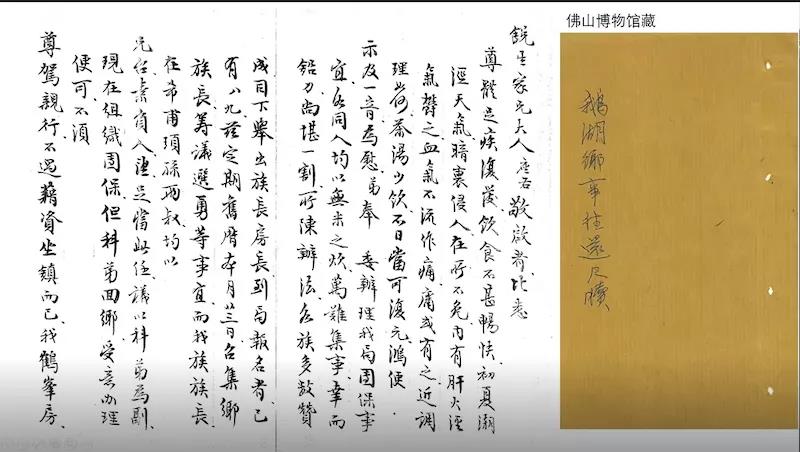 佛山博物馆藏
鵝湖鄉事往還尺牘
銳生家兄大人座右敬啟者比悉
尊體足疾復發飲食不甚暢快初夏潮
溼天氣暗裏侵入在所不免內有肝火溼
氣礙之血氣不流作痛或有之近調
理荷茶湯少飲不日當可復元鴻便
示及一音為慰弟奉 委辦理我局團保事
宜各同人均以無米之炊萬難集事幸而
鉛刀尚堪一割所陳辦法各族多數贊
成目下舉出族長房長到局報名者已
有八九茲定期舊曆本月廿三日召集鄉
族長籌議選勇等事宜而我族族長
在芾甫頊孫兩叔均以
兄台素負人望足當此任議以科弟為副
現在組織團保但科弟回鄉受意辦理
便可不須
尊駕親行不過藉資坐鎮而已我鶴峯房